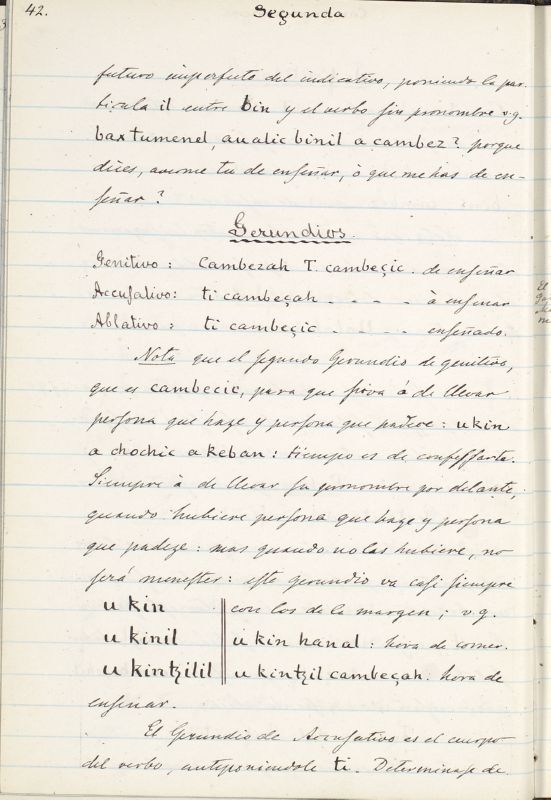 42. Segunda
futuro imperfecto del indicativo, poniendo la par-
ticula il entre bin y el verbo sin pronombre v.g.
baxtumenel, aualic binil a cambez? porque
dices, aueme tu de enseñar, ò que me has de en-
señar?
Gerundios.
Genitivo: Cambezah T. cambeçic. de enseñar
Accusativo: ti cambeçah - - - - à enseñar
Ablativo: ti cambeçic - - - - - enseñado.
Nota que el segundo Gerundio de genitivo,
que es cambecic, para que sirva à de llevar
persona que haze y persona que padece: u kin
a chochic a keban: tiempo es de confessarte.
Siempre à de llevar su pronombre por delante,
quando hubiere persona que haze y persona
que padeze: mas quando no las hubiere, no
será menester: este gerundio va casi siempre
u kin con los de la margen; v.g.
u kinil u kin hanal: hora de comer.
u kintzilil u kintzil cambeçah. hora de
enseñar.
El Gerundio de Accusativo es el cuerpo
del verbo, anteponiendole ti. Determinase de